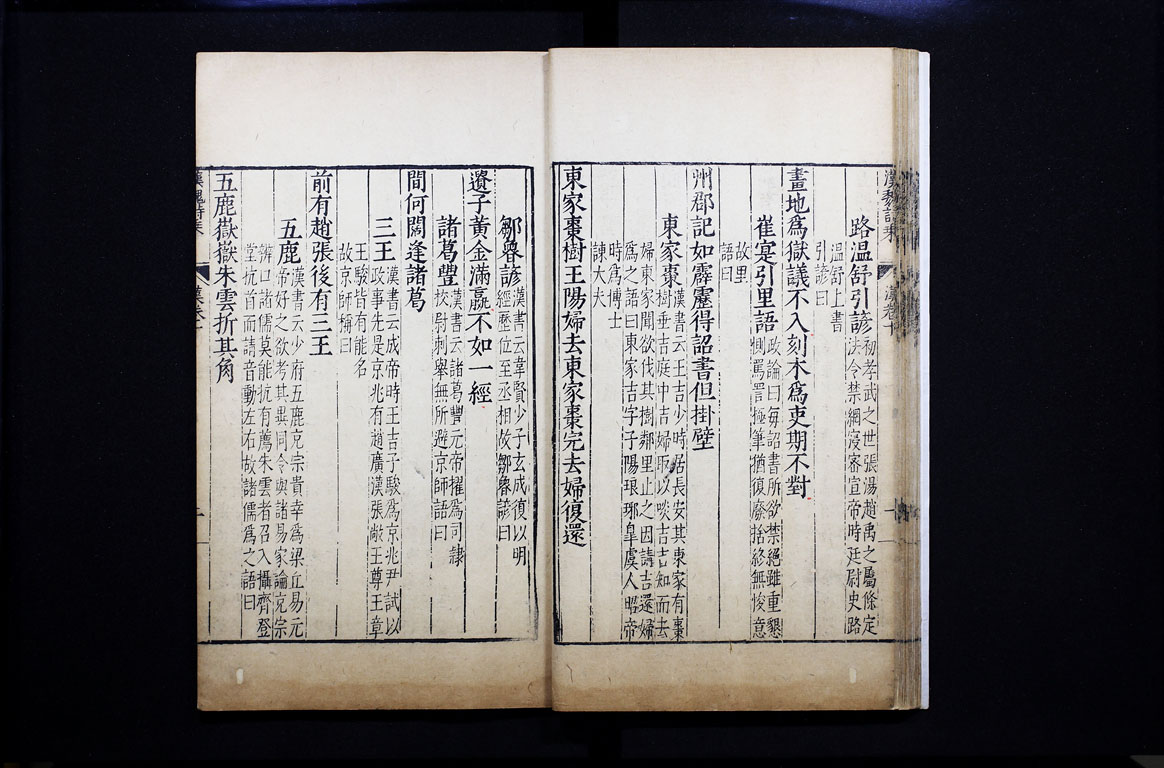 漢魏詩乘
漢卷十
一
路溫舒引諺初孝武之世張湯趙禹之屬條定
法令禁網寖密宣帝時廷尉史路
溫舒上書
引諺曰
畫地爲獄議不入刻木爲吏期不對
崔寔引里語政論曰每詔書所欲禁絕雖重懇
惻罵詈極筆猶復廢捨終無悛意
故里
語曰
州郡記如霹靂得詔書但掛壁
東家棗漢書云王吉少時居長安其東家有棗
樹垂吉庭中吉婦取以啖吉吉知而去
婦東家聞欲伐其樹鄰里止之因請吉還婦
爲之語曰東家吉字子陽琅琊皐虞人昭帝
時爲博士
諫大夫
東家棗樹王陽婦去東家棗完去婦復還
鄒魯諺漢書云韋賢少子玄成復以明
經歷位至丞相故鄒魯諺曰
遺子黃金滿籯不如一經
諸葛豐漢書云諸葛豐元帝擢爲司隷
校尉刺舉無所避京師語曰
間何闊逢諸葛
三王漢書云成帝時王吉子駿爲京兆尹試以
政事先是京兆有趙廣漢張敞王尊王章
王駿皆有能名
故京師稱曰
前有趙張後有三王
五鹿漢書云少府五鹿充宗貴幸爲梁丘易元
帝好之欲考其異同令與諸易家論充宗
辨口諸儒莫能抗有薦朱雲者召入攝齊登
堂抗首而請音動左右故諸儒爲之語曰
五鹿嶽嶽朱雲折其角
漢魏詩乘
漢卷十